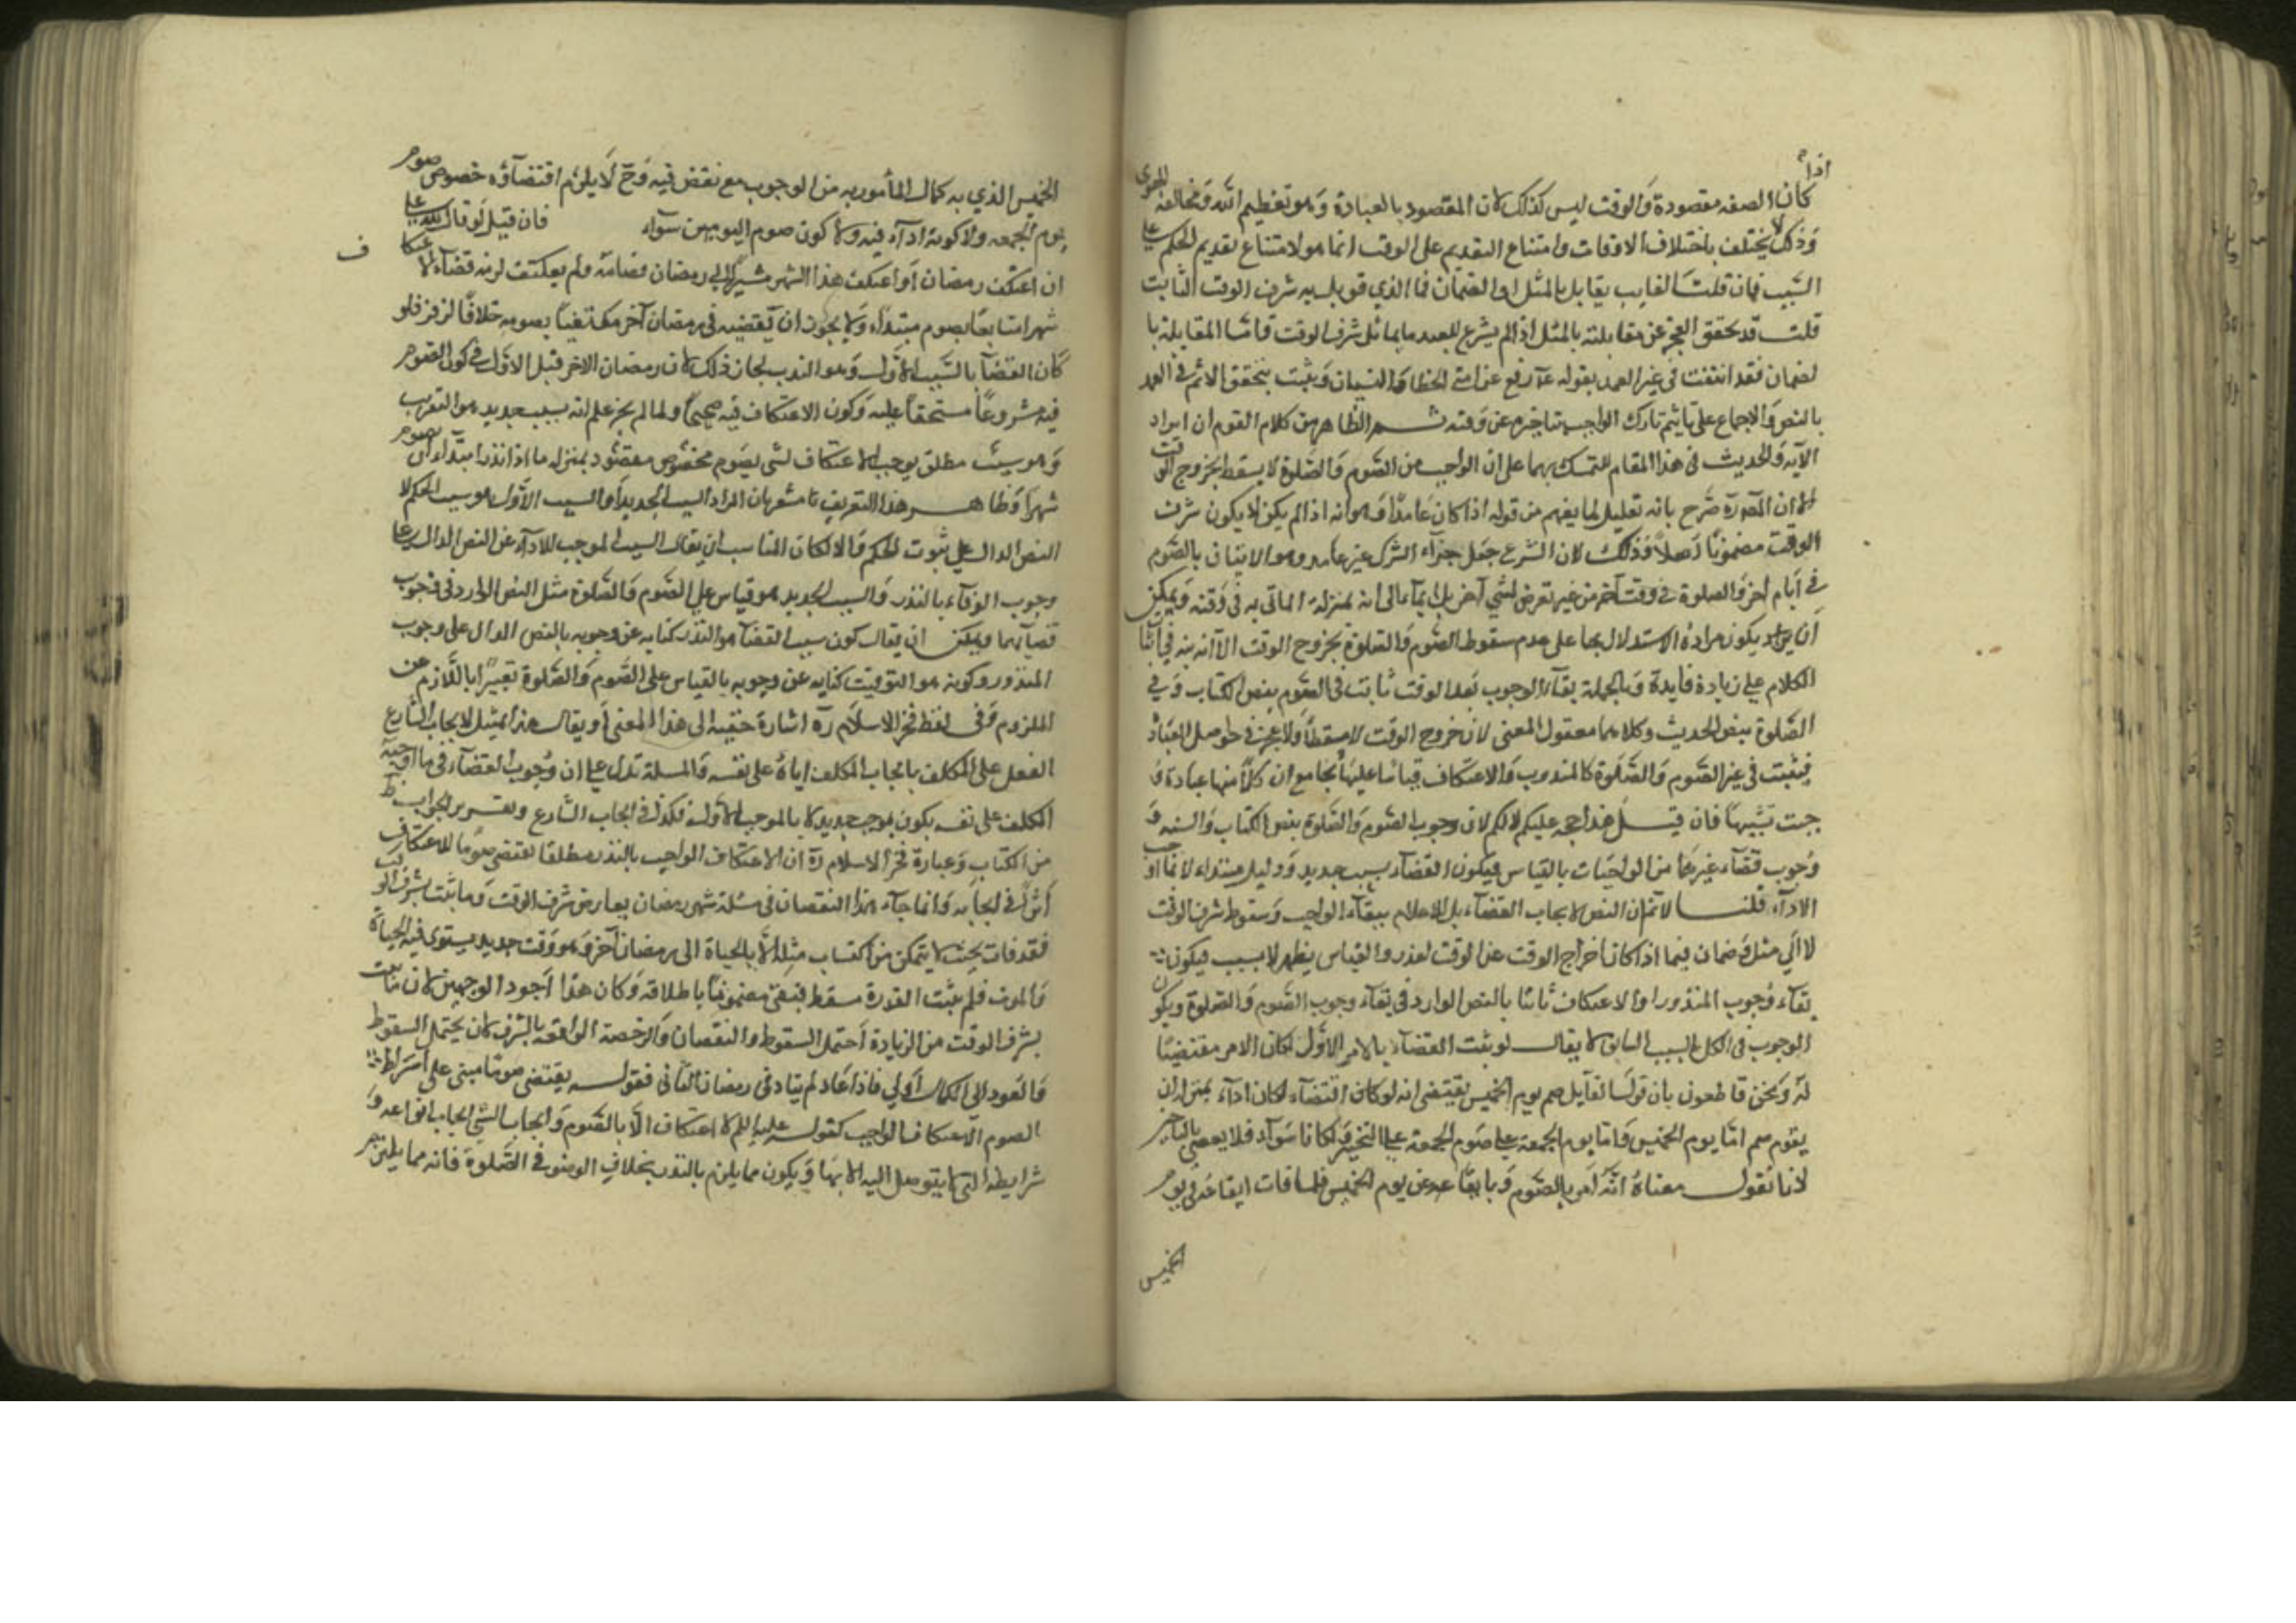 اذا
كان الصفه مقصودة والوقت ليس كذلك لان المقصود بالعبادة وهو تعظيم الله ومخالفة الهوى
وذلك لا يختلف باختلاف الاوقات وامتناع التقديم على الوقت انما هو لامتناع تقديم الحكم على
السبب فان قلت الفايت يقابل بالمثل او الضمان فما الذي قوبل به شرف الوقت الثابت
قلت قد تحقق العجز عن مقابلته بالمثل اذ لم يشرع للعبد ما يماثل شرف الوقت فاما المقابلة با
لضمان فقد انتفت في غير العمد بقوله عم رفع عن امتي الخطا والنسيان وثبت بتحقق الاثم في العمد
بالنص والاجماع على تأثيم تارك الواجب بتاخيره عن وقته ثم الظاهر من كلام القوم ان ايراد
الآية والحديث في هذا المقام للتمسك بهما على ان الواجب من الصوم والصلوة لا يسقط بخروج الوقت
الا ان المص ره صرح بانه تعليل لما يفهم من قوله اذا كان عامدا وهو انه اذا لم يكن لا يكون شرف
الوقت مضمونا اصلا وذلك لان الشرع جعل جزاء الترك غير عامد وهو الاتيان بالصوم
في ايام اخر والصلوة في وقت آخر من غير تعرض لشي آخر بل ايماء الى انه بمنزلة الماتي به في وقته ويمكن
ان يراد يكون مراده الاستدلال بها على عدم سقوط الصوم والصلوة بخروج الوقت الا انه نبه في اثنا
الكلام على زيادة فايدة وبالجملة بقاء الوجوب بعد الوقت ثابت في الصوم بنص الكتاب وفي
الصلوة بنص الحديث وكلاهما معقول المعنى لان خروج الوقت لا مسقطا ولا عجز في حق اصل العبادة
فيثبت في غير الصوم والصلوة كالمندوب والاعتكاف قياسا عليهما بجامع ان كلا منها عبادة و
جبت بسببها فان قيل هذا حجه عليكم لا لكم لان وجوب الصوم والصلوة بنص الكتاب والسنه و
وجوب قضاء غيرهما من الواجبات بالقياس فيكون القضاء بسبب جديد ودليل مبتداء لا بما اوجب
الاداء قلنا لا نم ان النص لايجاب القضاء بل الاعلام ببقاء الواجب وسقوط شرف الوقت
لا الي مثل وضمان فيما اذا كان اخراج الوقت عن الوقت لعذر والقياس يظهر لا سبب فيكون
بقاء وجوب المنذور او الاعتكاف ثابتا بالنص الوارد في بقاء وجوب الصوم والصلوة ويكون
الوجوب في الكل بالسبب السابق لا يقال لو ثبت القضاء بالامر الاول لكان الامر مقتضيا
له ونحن قاطعون بان قول القايل صم يوم الخميس يقتضي انه لو كان اقتضاء لكان اداء بمنزلة ان
يقوم صم اما يوم الخميس واما يوم الجمعة على صوم الجمعة على التخيير ولكانا سواء فلا يعصي بالتاخير
لانا نقول معناه انه امر بالصوم وبايقاعه عن يوم الخميس فلما فات ايقاعه في يوم
الخميس
الخميس الذي به كمال المأمور به من الوجوب مع نقض فيه وح لا يلزم اقتضاؤه خصوص صوم
يوم الجمعه ولا كونه اداء فيه ولا كون صوم اليومين سواء فان قيل لو قال لله علي
ف
ان اعتكف رمضان او اعتكف هذا الشهر مشيرا الى رمضان فصامه ولم يعكتف لزمه قضاء الاعتكا
شهرا متتابعا بصوم مبتداء ولا يجوز ان يقضيه في رمضان آخر مكتفيا بصومه خلافا لزفر فلو
كان القضا بالسبب الاول وهو النذب لجاز ذلك لان رمضان الاخر قبل الاول في كون الصوم
فيه مشروعا مستحقا عليه وكون الاعتكاف فيه صحيحا ولما لم يجز علم انه بسبب جديد هو التفويت
وهو سبب مطلق يوجب الاعتكاف لشي بصوم مخصوص مقصود بمنزلة ما اذا نذر ابتداء ان يصوم
شهرا وظاهر هذا التعريف ما مشعر بان المراد السبب الجديد او السبب الاول هو سبب الحكم لا
النص الدال على ثبوت الحكم والا لكان المناسب ان يقال السبب الموجب للاداء عن النص الدال على
وجوب الوفاء بالنذر والسبب الجديد هو قياس على الصوم والصلوة مثل النص الوارد في وجوب
قضائهما ويمكن ان يقال كون سبب القضاء هو النذر كنايه عن وجوبه بالنص الدال على وجوب
المنذور وكونه هو التوقيت كنايه عن وجوبه بالقياس على الصوم والصلوة تعبيرا باللازم عن
الملزوم وفي لفظ فخر الاسلام ره اشارة خفيه الى هذا المعنى او يقال هذا تمثيل لايجاب الشارع
الفعل على المكلف بايجاب المكلف اياه على نفسه والمسلة تدل على ان وجوب القضاء في ما اوجبه
المكلف على نفسه يكون بموجب جديد لا بالموجب الاول فكذلك في ايجاب الشارع وتقرير الجواب ظ
من الكتاب وعبارة فخر الاسلام ره ان الاعتكاف الواجب بالنذر مطلقا يقتضي صوما للاعتكاف
اثر في ايجابه وانما جاء هذا النقصان في مسئلة شهر رمضان بعارض شرف الوقت وما ثبت بشرف الوقت
فقد فات بحيث لا يتمكن من اكتساب مثله الا بالحياة الى رمضان آخر وهو وقت جديد يستوي فيه الحياة
والموت فلم يثبت القدرة فسقط فبقى مضمونا باطلاقه وكان هذا اجود الوجهين لان ما ثبت
بشرف الوقت من الزيادة احتمل السقوط والنقصان والرخصة الواقعه بالشرف لان يحتمل السقوط
والعود الى الكمال اولي فاذا عاد لم يتاد في رمضان الثاني فقوله يقتضي صوما مبني على اشراط
الصوم الاعتكاف الواجب كقوله عليه السلم لا اعتكاف الا بالصوم وايجاب الشي ايجاب لقواعد و
شرايطه التي لا يتوصل اليه الا بها ويكون مما يلزم بالنذر بخلاف الوضوء في الصلوة فانه مما يلتزم